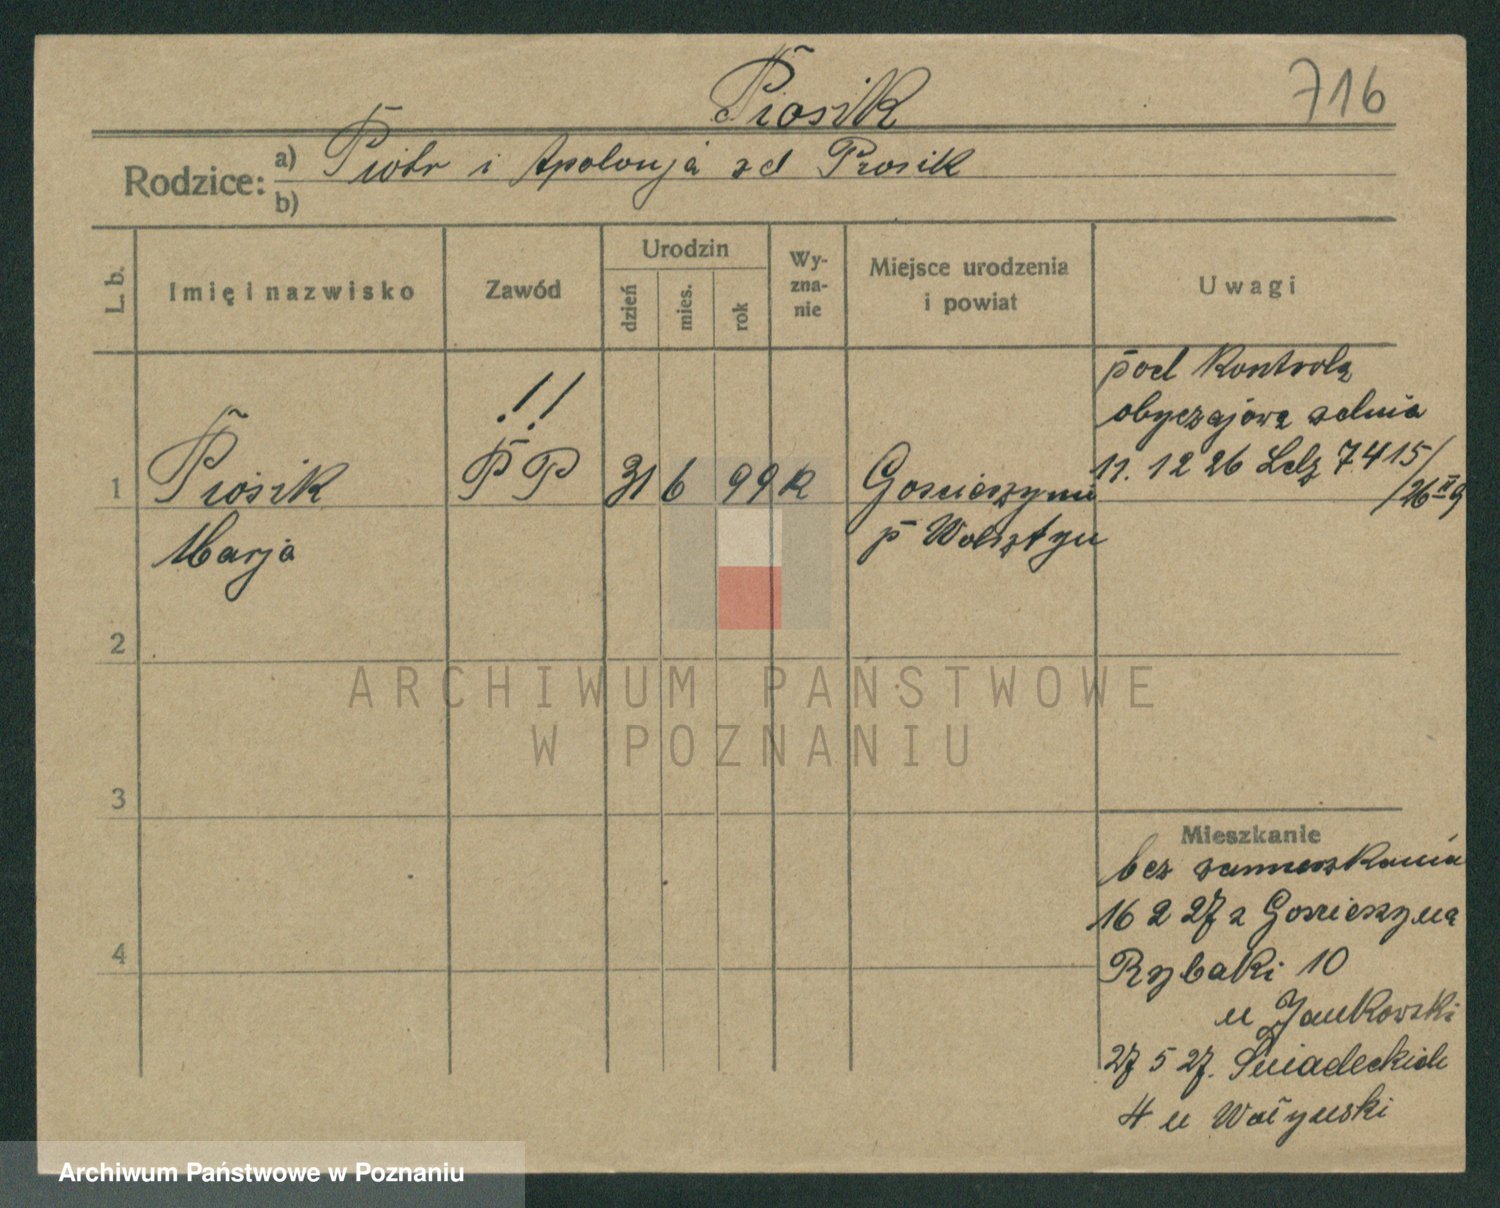 Piosik
716
Rodzice:
a) Piotr i Apolonja zd Piosik
b)
L. b.
Imię i nazwisko
Zawód
Urodzin
dzień
mies.
rok
Wy-
zna-
nie
Miejsce urodzenia
i powiat
Uwagi
1
Piosik
Marja
!!
PP
31 6 99 R
Gościeszyni
p Wolsztyn
pod kontrolą
obyczajową z dnia
11. 12 26 Ldz 7415/
/26 II 9
2
3
4
Mieszkanie
bez zamieszkania
16 2 27 z Gościeszyna
Rybaki 10
u Jankowski
27 5 27. Śniadeckich
4 u Wołyński
ARCHIWUM PAŃSTWOWE
W POZNANIU
Archiwum Państwowe w Poznaniu